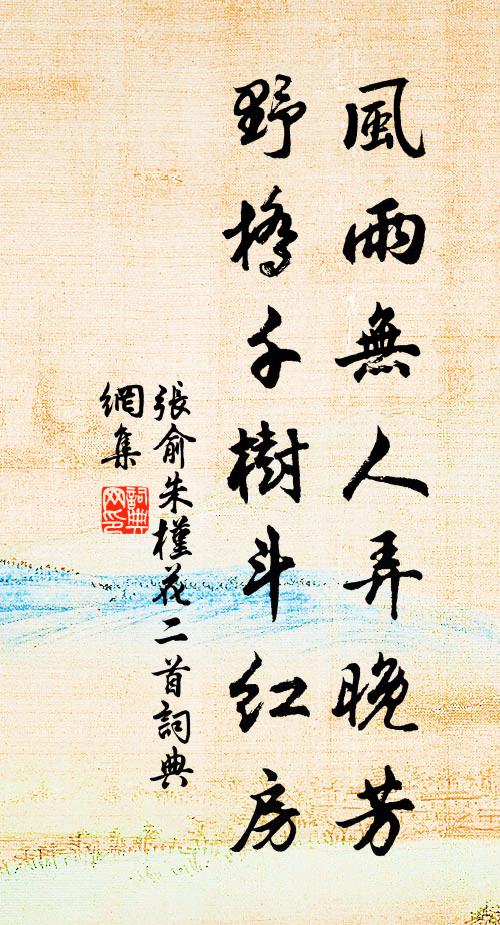 風雨無人弄晚芳
野橋千樹斗红房
張俞朱槿花二首詞典
網集
詞典
网印